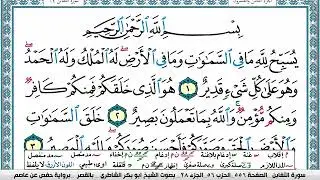 بِسْمِ ٱللَّهِ ٱلرَّحْمَٰنِ ٱلرَّحِيمِ
يُسَبِّحُ لِلَّهِ مَا فِى ٱلسَّمَٰوَٰتِ وَمَا فِى ٱلْأَرْضِ ۖ لَهُ ٱلْمُلْكُ وَلَهُ ٱلْحَمْدُ ۖ
وَهُوَ عَلَىٰ كُلِّ شَىْءٍ قَدِيرٌ ١ هُوَ ٱلَّذِى خَلَقَكُمْ فَمِنكُمْ كَافِرٌ
وَمِنكُم مُّؤْمِنٌ ۚ وَٱللَّهُ بِمَا تَعْمَلُونَ بَصِيرٌ ٢ خَلَقَ ٱلسَّمَٰوَٰتِ
وَٱلْأَرْضَ بِٱلْحَقِّ وَصَوَّرَكُمْ فَأَحْسَنَ صُوَرَكُمْ ۖ وَإِلَيْهِ ٱلْمَصِيرُ ٣
سورة التغابن الصفحة ٥٥٦ الحزب ٥٦ الجزء ٢٨ بصوت الشيخ ابو بكر الشاطري بالقصر